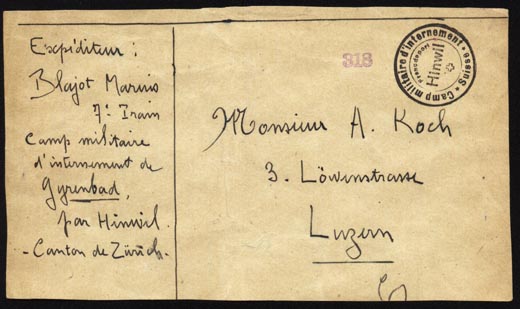 Expéditeur :
Blajot Marius
7e Train
Camp militaire
d'internement de
Gyrenbad,
par Hinwil.
- Canton de Zürich -
318
Camp militaire d'internement • Suisse •
Hinwil
Monsieur A. Koch
3. Löwenstrasse
Luzern